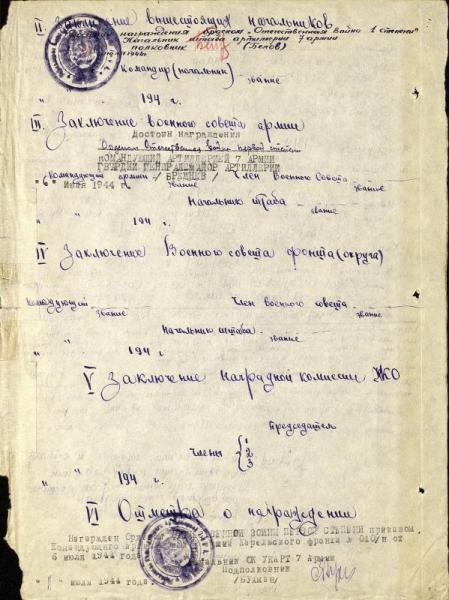 II заключение вышестоящих начальников
награждения орденом „Отечественная война 1 степени"
Начальник штаба артиллерии 7 армии
полковник (Белов)
Командир (начальник)
звание
" 194 г.
III Заключение военного совета армии
Достоин награждения
Орденом Отечественная война первой степени
КОМАНДУЮЩИЙ АРТИЛЛЕРИЕЙ 7 АРМИИ
ГВАРДИИ ГЕНЕРАЛ-МАЙОР АРТИЛЛЕРИИ
Командующий армии / БРЕЖНЕВ / Член Военного Совета
"6" июля 1944 г. звание звание
Начальник штаба -
звание
" " 194 г.
IV Заключение Военного совета фронта (округа)
Командующий Член военного совета -
звание звание
Начальник штаба -
звание
" " 194 г
V Заключение наградной комиссии НКО
Председатель
Члены { 1
2
3
" " 194 г.
VI Отметка о награждении
Награжден ВЕННОЙ ВОЙНЫ ПЕРВОЙ СТЕПЕНИ приказом
Командующего Карельского фронта № 010/н от
6 июля 1944 года. СК УКАРТ 7 Армии
Подполковник
" " июля 1944 года